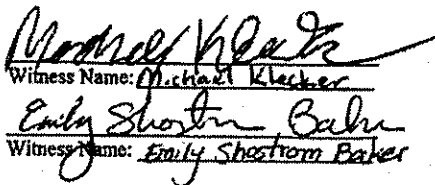 Michael Klecker
Witness Name: Michael Klecker
Emily Shostrom Baker
Witness Name: Emily Shostrom Baker